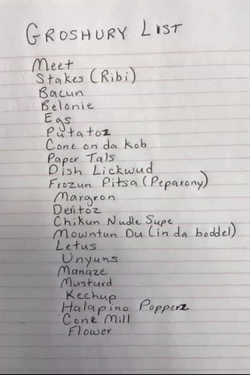 GROSHURY LIST
Meet
Stakes (Ribi)
Bacun
Belonie
Egs
Putatoz
Cone on da Kob
Paper Tals
Dish Lickwud
Frozun Pitsa (Peparony)
Margron
Deñtoz
Chikun Nudle Supe
Mowntun Du (in da boddel)
Letus
Unyuns
Manaze
Musturd
Kechup
Halapino Popperz
Cone Mill
Flower